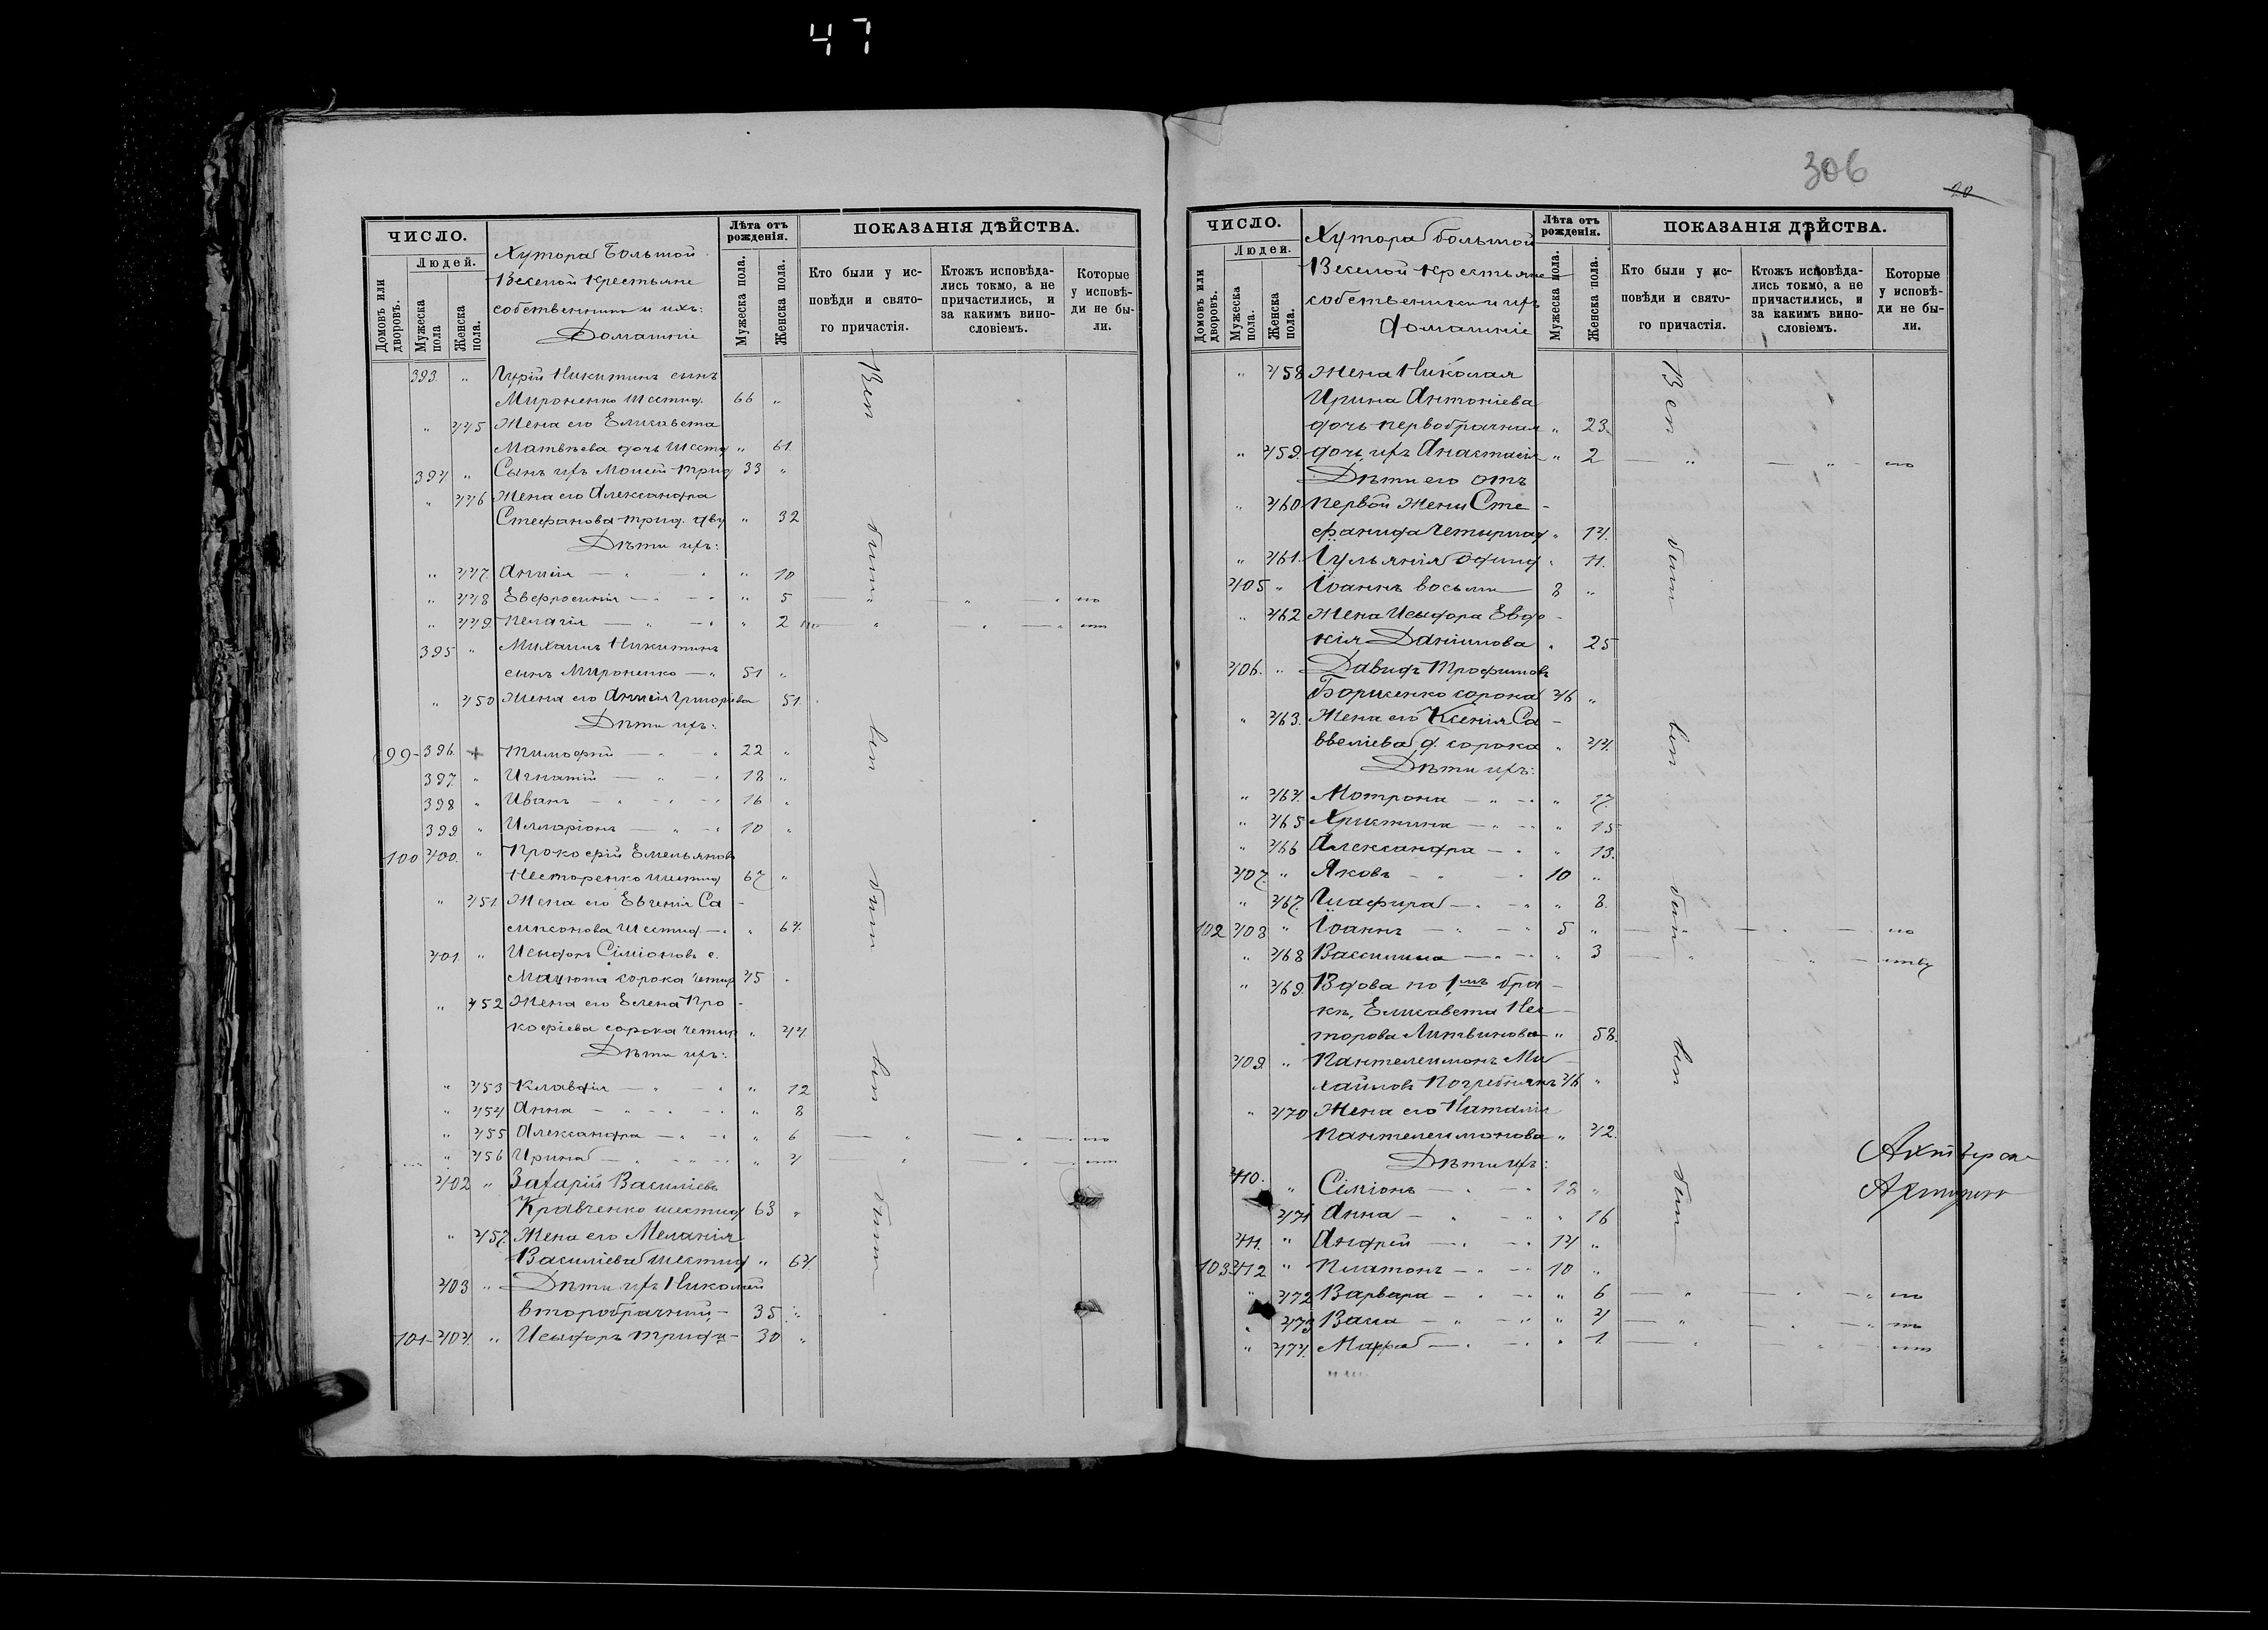 47
ЧИСЛО.
Людей.
Домовъ или дворовъ.
Мужеска пола
Женска пола.
Хутора Большой
Веселой крестьяне
собственники и ихъ:
Домашніе
Лѣта отъ рожденія.
Мужеска пола.
Женска пола.
ПОКАЗАНІЯ ДѢЙСТВА.
Кто были у ис-
повѣди и свято-
го причастія.
Ктожъ исповѣда-
лись токмо, а не
причастились, и
за какимъ вино-
словіемъ.
Которые
у исповѣ-
ди не бы-
ли.
393. " Гурій Никитинъ сынъ
Мироненко шестид. 66 "
" 445 Жена его Елисавета
Матвѣева дочь шестд " 61.
394 " Сынъ ихъ Моисей трид 33 "
" 446 Жена его Александра
Стефанова трид. дву " 32
Дѣти ихъ:
" 447. Аннія — " — " " 10
" 448 Евфросинія — " — " " 5 — " — " по
" 449 Пелагія — " — " " 2 — " — "
395 " Михаилъ Никитинъ
сынъ Мироненко — " 51 "
" 450 Жена его Аннія Григоріева 51.
Дѣти ихъ:
99 - 396. + Тимофей — " 22 "
397. " Игнатій — " — " 18 "
398 " Иванъ — " — " 16 "
399. " Илларіонъ — " — " 10 "
100 400. " Прокофій Емельяновъ
Несторенко шестид 67 "
" 451. Жена его Евгенія Са -
мпсонова шестид — " " 64.
401. " Исидоръ Сіміоновъ с.
Мацюта сорока четыр 45 "
" 452 Жена его Елена Про -
кофіева сорока четыр " 44.
Дѣти ихъ:
" 453 Клавдія — " — " " 12
" 454 Анна — " — " " 8
" 455 Александра — " — " " 6 — " — " по
" 456 Ирина — " — " " 4 — " — "
402 " Захарій Василіевъ
Кравченко шестид 63 "
" 457. Жена его Меланія
Василіева шестид " 64.
403 " Дѣти ихъ Николай
второбрачный, — 35 "
101 - 404. " Исидоръ тридц — 30 "
Вси были вси были вси были
306
20
ЧИСЛО.
Людей.
Домовъ или дворовъ.
Мужеска пола.
Женска пола.
Хутора большой
Веселой крестьяне
собственники и ихъ
домашніе
Лѣта отъ рожденія.
Мужеска пола.
Женска пола.
ПОКАЗАНІЯ ДѢЙСТВА.
Кто были у ис-
повѣди и свято-
го причастія.
Ктожъ исповѣда-
лись токмо, а не
причастились, и
за какимъ вино-
словіемъ.
Которые
у исповѣ-
ди не бы-
ли.
" 458 Жена Николая
Ирина Антоніева
дочь первобрачная " 23.
" 459. дочь ихъ Анастасія " 2 — " — " по
Дѣти его отъ
" 460 первой жены Сте -
фанида четырнад " 14.
" 461. Іульянія одинд " 11.
405 " Іоаннъ восьми 8 "
" 462 Жена Исидора Евдо -
кія Даніилова " 25
406. " Давидъ Трофимовъ
Борисенко сорока 46 "
" 463. Жена его Ксенія Са -
ввеліева д. сорока " 44.
Дѣти ихъ:
" 464. Мотрона — " — " " 17.
" 465 Христина — " — " " 15
" 466 Александра — " " 13.
407. " Яковъ — " — " 10 "
" 467. Глафира — " — " " 8.
102 408 " Іоаннъ — " — " 5 " — " — " по
" 468 Василиса — " — " " 3 — " — "
" 469. Вдова по 1мъ бра -
кѣ, Елисавета Нес -
торова Литвинова " 58.
409. " Пантелеимонъ Ми -
хайловъ Погребнякъ 46 "
" 470 Жена его Наталія
Пантелеимонова " 42.
Дѣти ихъ:
410. " Сіміонъ — " — " 18 "
471 Анна — " — " " 16
411. " Андрей — " — " 14 "
103 412 " Платонъ — " — " 10 "
" 472 Варвара — " — " " 6 — " — " по
" 473 Васса — " — " " 4 — " — "
" 474. Марфа — " — " " 1 — " — "
Вси были вси были вси были